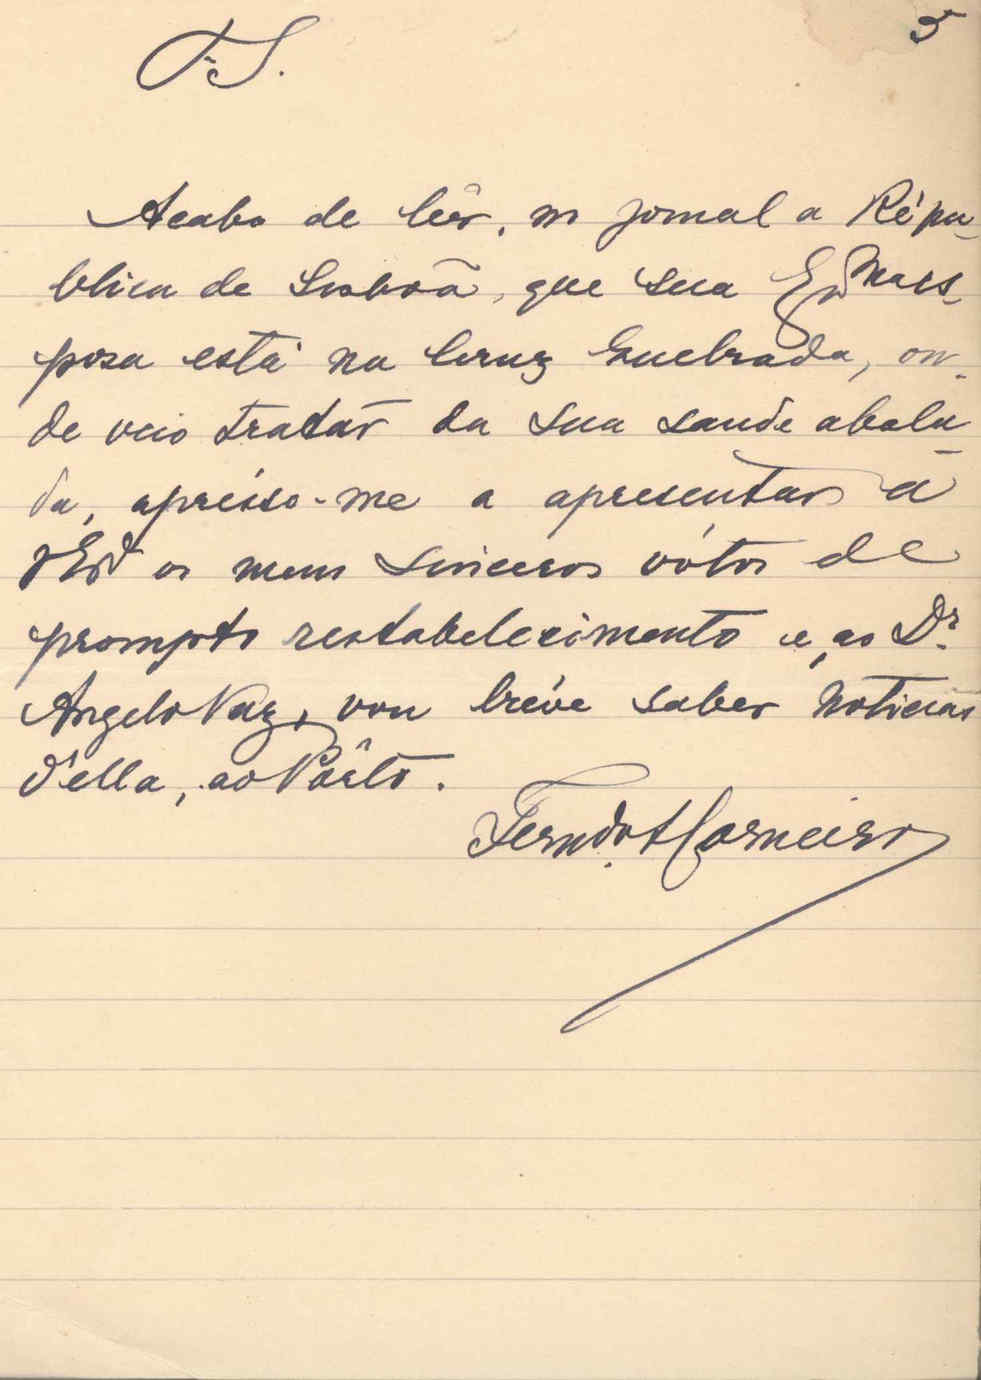 5
P.S.
Acabo de lêr, no jornal a Répu-
blica de Lisbôa, que sua Exma es-
posa está na Cruz Quebrada, on-
de veio tratar da sua saude abala-
da, aprésso-me a apresentar á
V Exª os meus sinceros vótos de
prompto restabelecimento e, ao Dr.
Angelo Vaz, vou bréve saber noticias
d'ella, ao Pôrto.
Ferndo A Carneiro